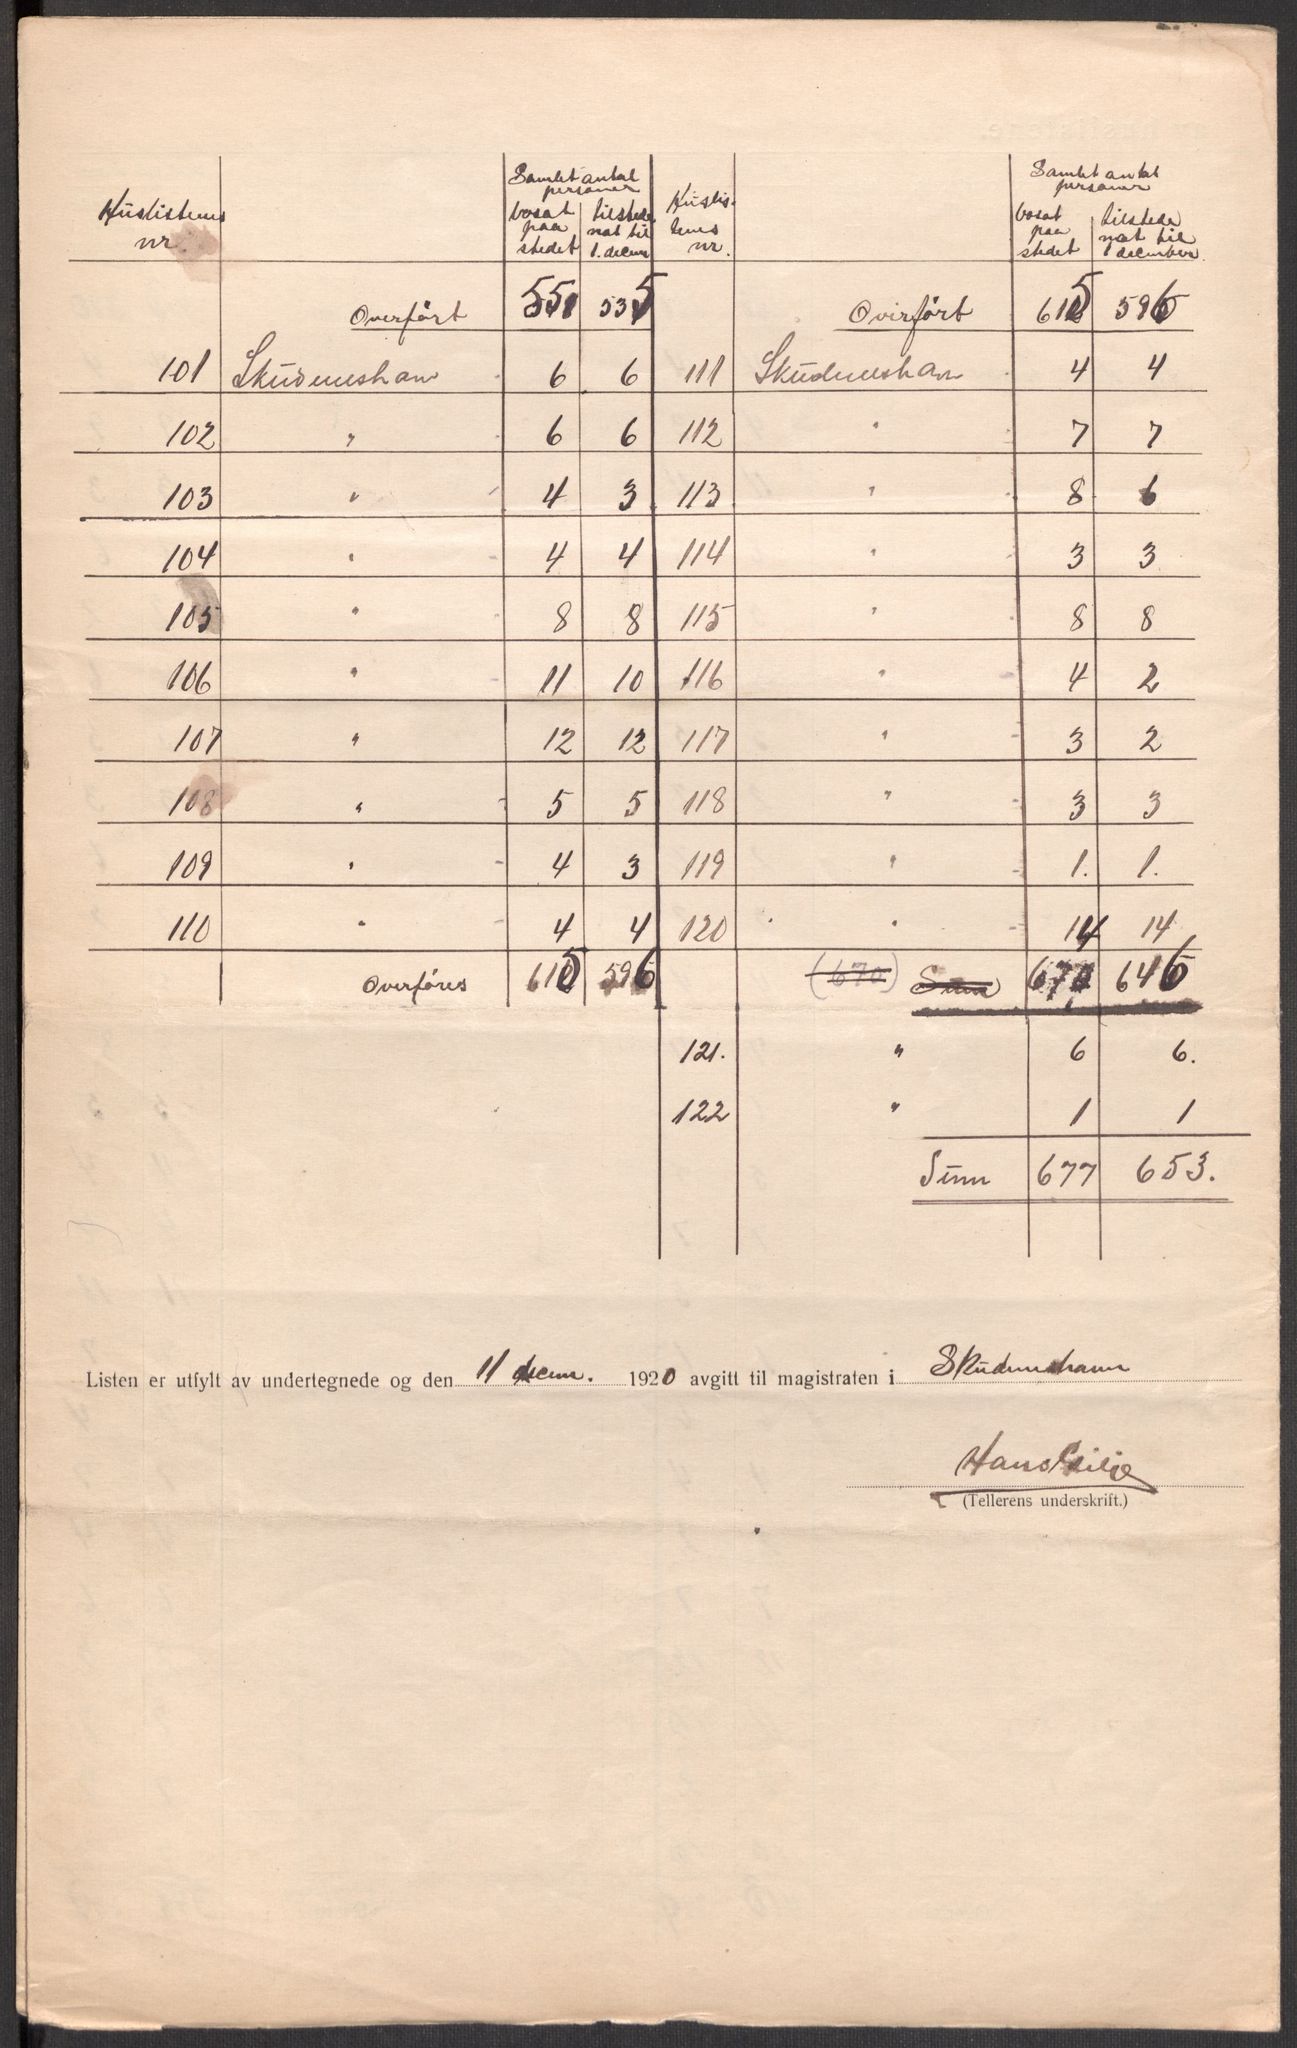 Samlet antal personer
Samlet antal personer
Huslistens nr.
bosat paa stedet
tilstede nat til 1. decem
Huslis- tenes nr.
bosat paa stedet
tilstede nat til 1 december
Overført 551 535 Overført 615 596
101 Skudeneshavn 6 6 111 Skudeneshavn 4 4
102 " 6 6 112 " 7 7
103 " 4 3 113 " 8 6
104 " 4 4 114 " 3 3
105 " 8 8 115 " 8 8
106 " 11 10 116 " 4 2
107 " 12 12 117 " 3 2
108 " 5 5 118 " 3 3
109 " 4 3 119 " 1. 1.
110 " 4 4 120 " 14 14
Overføres 615 596 (670) Sum 670 646
121. " 6 6.
122 " 1 1
Sum 677 653.
Listen er utfylt av undertegnede og den 11 decem. 1920 avgitt til magistraten i Skudeneshavn
Hans
(Tellerens underskrift.)